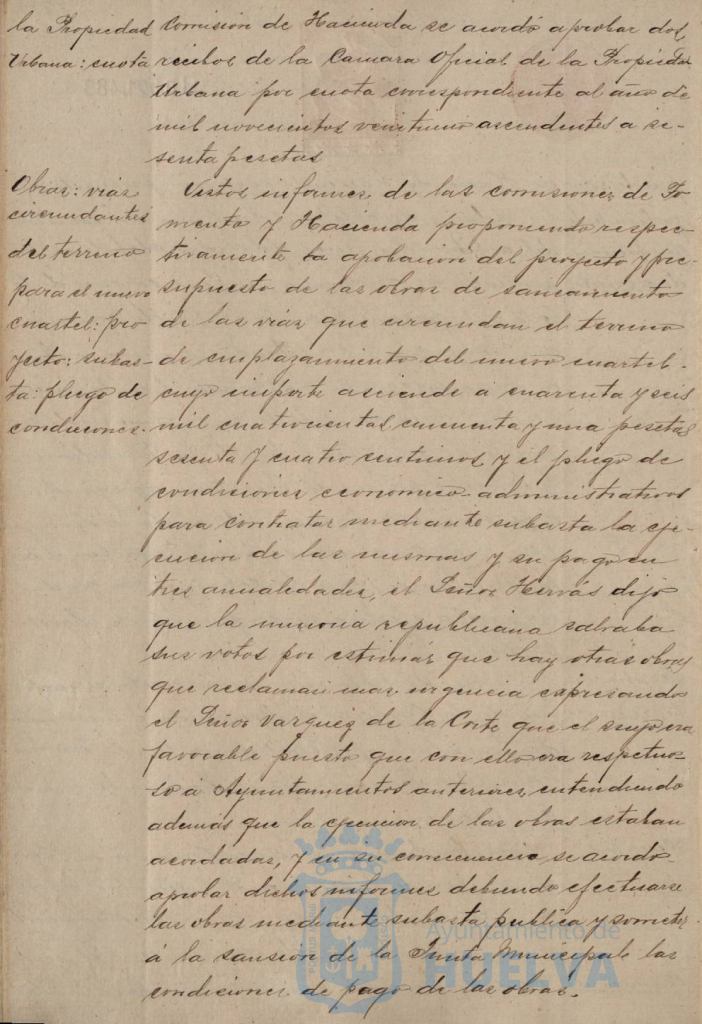 la Propiedad
Urbana: cuota
Comisión de Hacienda se acordó aprobar dos
recibos de la Camara Oficial de la Propiedad
Urbana por cuota correspondiente al año de
mil novecientos veintiuno ascendentes a se-
senta pesetas
Obras: vias
circundantes
del terreno
para el nuevo
cuartel: pro
yecto: subas-
ta: pliego de
condiciones.
Vistos informes de las comisiones de Fo
mento y Hacienda proponiendo respec-
tivamente la aprobacion del proyecto y pre-
supuesto de las obras de saneamiento
de las vias que circundan el terreno
de emplazamiento del nuevo cuartel.
cuyo importe asciende á cuarenta y seis
mil cuatrocientas cincuenta y una pesetas
sesenta y cuatro centimos y el pliego de
condiciones economico-administrativas
para contratar mediante subasta la eje-
cucion de las mismas y su pago en
tres anualidades, el Señor Hervás dijo
que la minoria republicana salvaba
sus votos por estimar que hay otras obras
que reclaman mas urgencia expresando
el Señor Vazquez de la Corte que el suyo era
favorable puesto que con ello era respetuo-
so á Ayuntamientos anteriores, entendiendo
además que la ejecucion de las obras estaban
acordadas, y en su consecuencia se acordó
aprobar dichos informes debiendo efectuarse
las obras mediante subasta publica y someter
á la sansión de la Junta Municipal las
condiciones de pago de las obras.
Ayuntamiento de
HUELVA